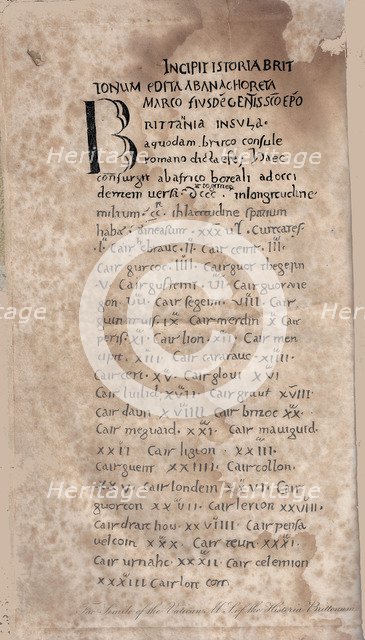 INCIPIT ISTORIA BRIT
TONUM EDITA AB ANACHORETA
MARCO EIUSDĒ GENTIS SCŌ EPŌ
BRITTANIA INSULA
a quodam brico consule
romano dicta est. haec
consurgit ab africo boreali ad occi
dentem versa
in longitudine
milium in latitudine spatium
habet
Cair ebrauc. II. Cair ceint. III.
Cair gurcoc. IIII. Cair guorthegern
V. Cair gusteint. VI. Cair guorane
gon VII. Cair segeint VIII. Cair
guintruis IX Cair merdin X Cair
peris. XI. Cair lion. XII. Cair men
cipit. XIII. Cair caratauc. XIIII.
Cair ceri. XV. Cair gloui XVI
Cair luilid XVII. Cair graut XVIII
Cair daun XVIIII. Cair britoc XX.
Cair meguaid. XXI. Cair mauiguid.
XXII Cair ligion. XXIII.
Cair guent XXIIII. Cair collon.
XXV. Cair londein XXVI. Cair
guorcon XXVII. Cair lerion XXVIII.
Cair draithou. XXVIIII. Cair pensa
uelcoin XXX. Cair teun. XXXI.
Cair urnahc XXXII. Cair celemion
XXXIII Cair loit coit
Fac Simile of the Vatican M.S. of the Historia Brittonum
Heritage
Heritage
Heritage
Heritage
Heritage
Heritage